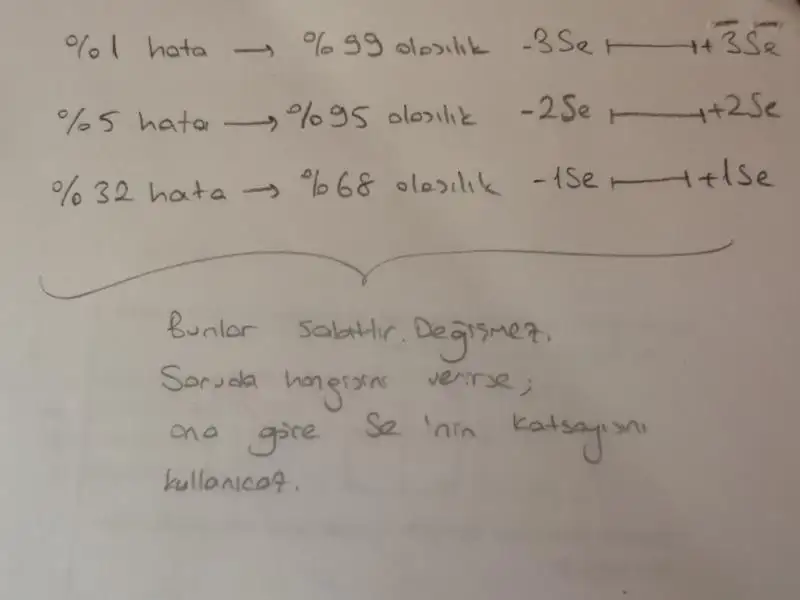 %1 hata → %99 olasılık -3Se ⊢⊣ +3Se
%5 hata → %95 olasılık -2Se ⊢⊣ +2Se
%32 hata → %68 olasılık -1Se ⊢⊣ +1Se
Bunlar sabittir. Değişmez.
Soruda hangisini verirse;
ona göre Se'nin katsayısnı
kullanıcaz.